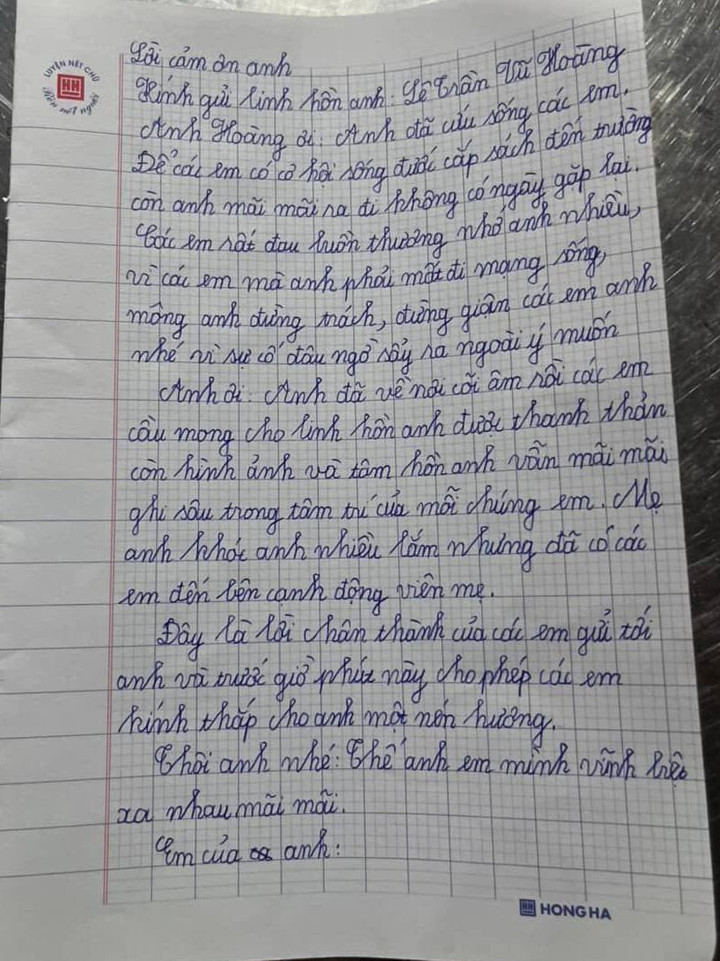 LUYỆN NÉT CHỮ
HH
Rèn nết người
Lời cảm ơn anh
Kính gửi linh hồn anh: Lê Trần Vũ Hoàng
Anh Hoàng ơi: Anh đã cứu sống các em.
Để các em có cơ hội sống được cắp sách đến trường
còn anh mãi mãi ra đi không có ngày gặp lại.
Các em rất đau buồn thương nhớ anh nhiều,
vì các em mà anh phải mất đi mạng sống,
mông anh đừng trách, đừng giận các em anh
nhé vì sự cố đâu ngờ sảy ra ngoài ý muốn
Anh ơi: Anh đã về nơi cõi âm rồi các em
cầu mong cho linh hồn anh được thanh thản
còn hình ảnh và tâm hồn anh vẫn mãi mãi
ghi sâu trong tâm trí của mỗi chúng em. Mẹ
anh khóc anh nhiều lắm nhưng đã có các
em đến bên cạnh động viên mẹ.
Đây là lời chân thành của các em gửi tới
anh và trước giờ phút này cho phép các em
kính thắp cho anh một nén hương.
Thôi anh nhé: Thế anh em mình vĩnh biệt
xa nhau mãi mãi.
Em của anh:
HH HONG HA